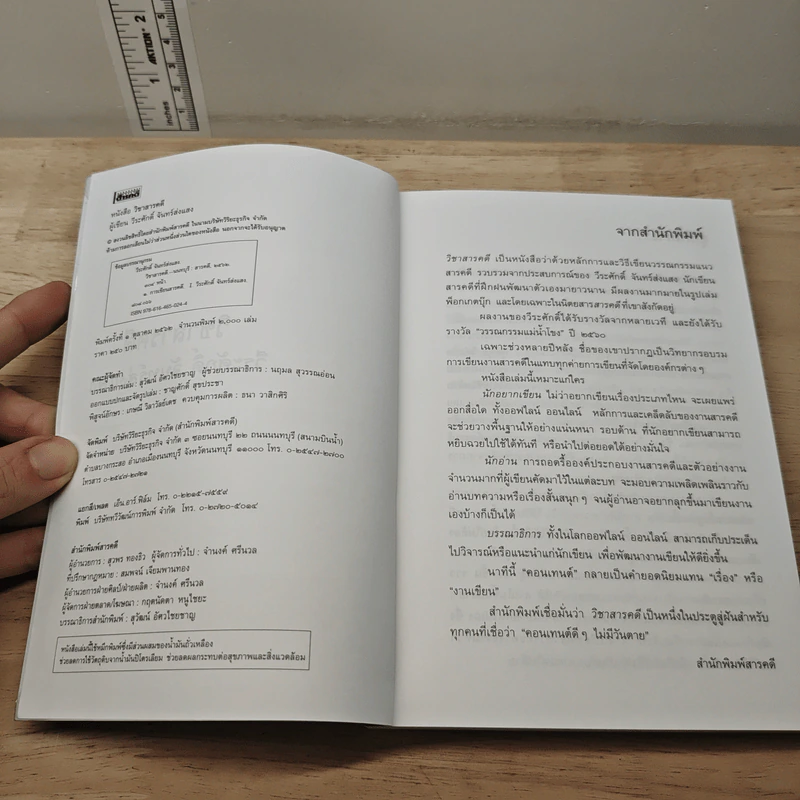 AKTION
1
2
inches
1
2
3
4
5
สารคดี
หนังสือ วิชาสารคดี
ผู้เขียน วีระศักดิ์ จันทร์ส่งแสง
© สงวนลิขสิทธิ์โดยสำนักพิมพ์สารคดี ในนามบริษัทวิริยะธุรกิจ จำกัด
ห้ามการลอกเลียนไม่ว่าส่วนหนึ่งส่วนใดของหนังสือ นอกจากจะได้รับอนุญาต
ข้อมูลบรรณานุกรม
วีระศักดิ์ จันทร์ส่งแสง
วิชาสารคดี.-นนทบุรี : สารคดี, ๒๕๖๒.
หน้า
๑. การเขียนสารคดี. I วีระศักดิ์ จันทร์ส่งแสง
ISBN 978-616-465-024-4
พิมพ์ครั้งที่ ๑ ตุลาคม ๒๕๖๒ จำนวนพิมพ์ ๒,๐๐๐ เล่ม
ราคา ๒๕๐ บาท
คณะผู้จัดทำ
บรรณาธิการเล่ม : สุวัฒน์ อัศวไชยชาญ ผู้ช่วยบรรณาธิการ : นฤมล สุวรรณอ่อน
ออกแบบปกและจัดรูปเล่ม : ชาญศักดิ์ สุขประชา
พิสูจน์อักษร : เกษณี วิลาวัลย์เดช ควบคุมการผลิต : ธนา วาสิกศิริ
จัดพิมพ์ บริษัทวิริยะธุรกิจ จำกัด (สำนักพิมพ์สารคดี)
จัดจำหน่าย บริษัทวิริยะธุรกิจ จำกัด ๓ ซอยนนทบุรี ๒๒ ถนนนนทบุรี (สนามบินน้ำ)
ตำบลบางกระสอ อำเภอเมืองนนทบุรี จังหวัดนนทบุรี ๑๑๐๐๐ โทร. ๐-๒๕๔๗-๒๗๐๐
โทรสาร ๐-๒๕๔๗-๒๗๒๑
แยกสี/เพลต เอ็น.อาร์.ฟิล์ม โทร. ๐-๒๒๑๕-๗๕๕๙
พิมพ์ บริษัททวีวัฒน์การพิมพ์ จำกัด โทร. ๐-๒๗๒๐-๕๐๑๔
สำนักพิมพ์สารคดี
ผู้อำนวยการ : สุวพร ทองธิว ผู้จัดการทั่วไป : จำนงค์ ศรีนวล
ที่ปรึกษากฎหมาย : สมพจน์ เจียมพานทอง
ผู้อำนวยการฝ่ายศิลป์/ฝ่ายผลิต : จำนงค์ ศรีนวล
ผู้จัดการฝ่ายตลาด/โฆษณา : กฤตนัดตา หนูไชยะ
บรรณาธิการสำนักพิมพ์ : สุวัฒน์ อัศวไชยชาญ
หนังสือเล่มนี้ใช้หมึกพิมพ์ซึ่งมีส่วนผสมของน้ำมันถั่วเหลือง
ช่วยลดการใช้วัตถุดิบจากน้ำมันปิโตรเลียม ช่วยลดผลกระทบต่อสุขภาพและสิ่งแวดล้อม
จากสำนักพิมพ์
วิชาสารคดี เป็นหนังสือว่าด้วยหลักการและวิธีเขียนวรรณกรรมแนว
สารคดี รวบรวมจากประสบการณ์ของ วีระศักดิ์ จันทร์ส่งแสง นักเขียน
สารคดีที่ฝึกฝนพัฒนาตัวเองมายาวนาน มีผลงานมากมายในรูปเล่ม
พ็อกเกตบุ๊ก และโดยเฉพาะในนิตยสารสารคดีที่เขาสังกัดอยู่
ผลงานของวีระศักดิ์ได้รับรางวัลจากหลายเวที และยังได้รับ
รางวัล “วรรณกรรมแม่น้ำโขง” ปี ๒๕๖๐
เฉพาะช่วงหลายปีหลัง ชื่อของเขาปรากฏเป็นวิทยากรอบรม
การเขียนงานสารคดีในแทบทุกค่ายการเขียนที่จัดโดยองค์กรต่าง ๆ
หนังสือเล่มนี้เหมาะแก่ใคร
นักอยากเขียน ไม่ว่าอยากเขียนเรื่องประเภทไหน จะเผยแพร่
ออกสื่อใด ทั้งออฟไลน์ ออนไลน์ หลักการและเคล็ดลับของงานสารคดี
จะช่วยวางพื้นฐานให้อย่างแน่นหนา รอบด้าน ที่นักอยากเขียนสามารถ
หยิบฉวยไปใช้ได้ทันที หรือนำไปต่อยอดได้อย่างมั่นใจ
นักอ่าน การถอดรื้อองค์ประกอบงานสารคดีและตัวอย่างงาน
จำนวนมากที่ผู้เขียนคัดมาไว้ในแต่ละบท จะมอบความเพลิดเพลินราวกับ
อ่านบทความหรือเรื่องสั้นสนุก ๆ จนผู้อ่านอาจอยากลุกขึ้นมาเขียนงาน
เองบ้างก็เป็นได้
บรรณาธิการ ทั้งในโลกออฟไลน์ ออนไลน์ สามารถเก็บประเด็น
ไปวิจารณ์หรือแนะนำแก่นักเขียน เพื่อพัฒนางานเขียนให้ดียิ่งขึ้น
นาทีนี้ “คอนเทนต์” กลายเป็นคำยอดนิยมแทน “เรื่อง” หรือ
“งานเขียน”
สำนักพิมพ์เชื่อมั่นว่า วิชาสารคดี เป็นหนึ่งในประตูสู่ฝันสำหรับ
ทุกคนที่เชื่อว่า “คอนเทนต์ดี ๆ ไม่มีวันตาย”
สำนักพิมพ์สารคดี